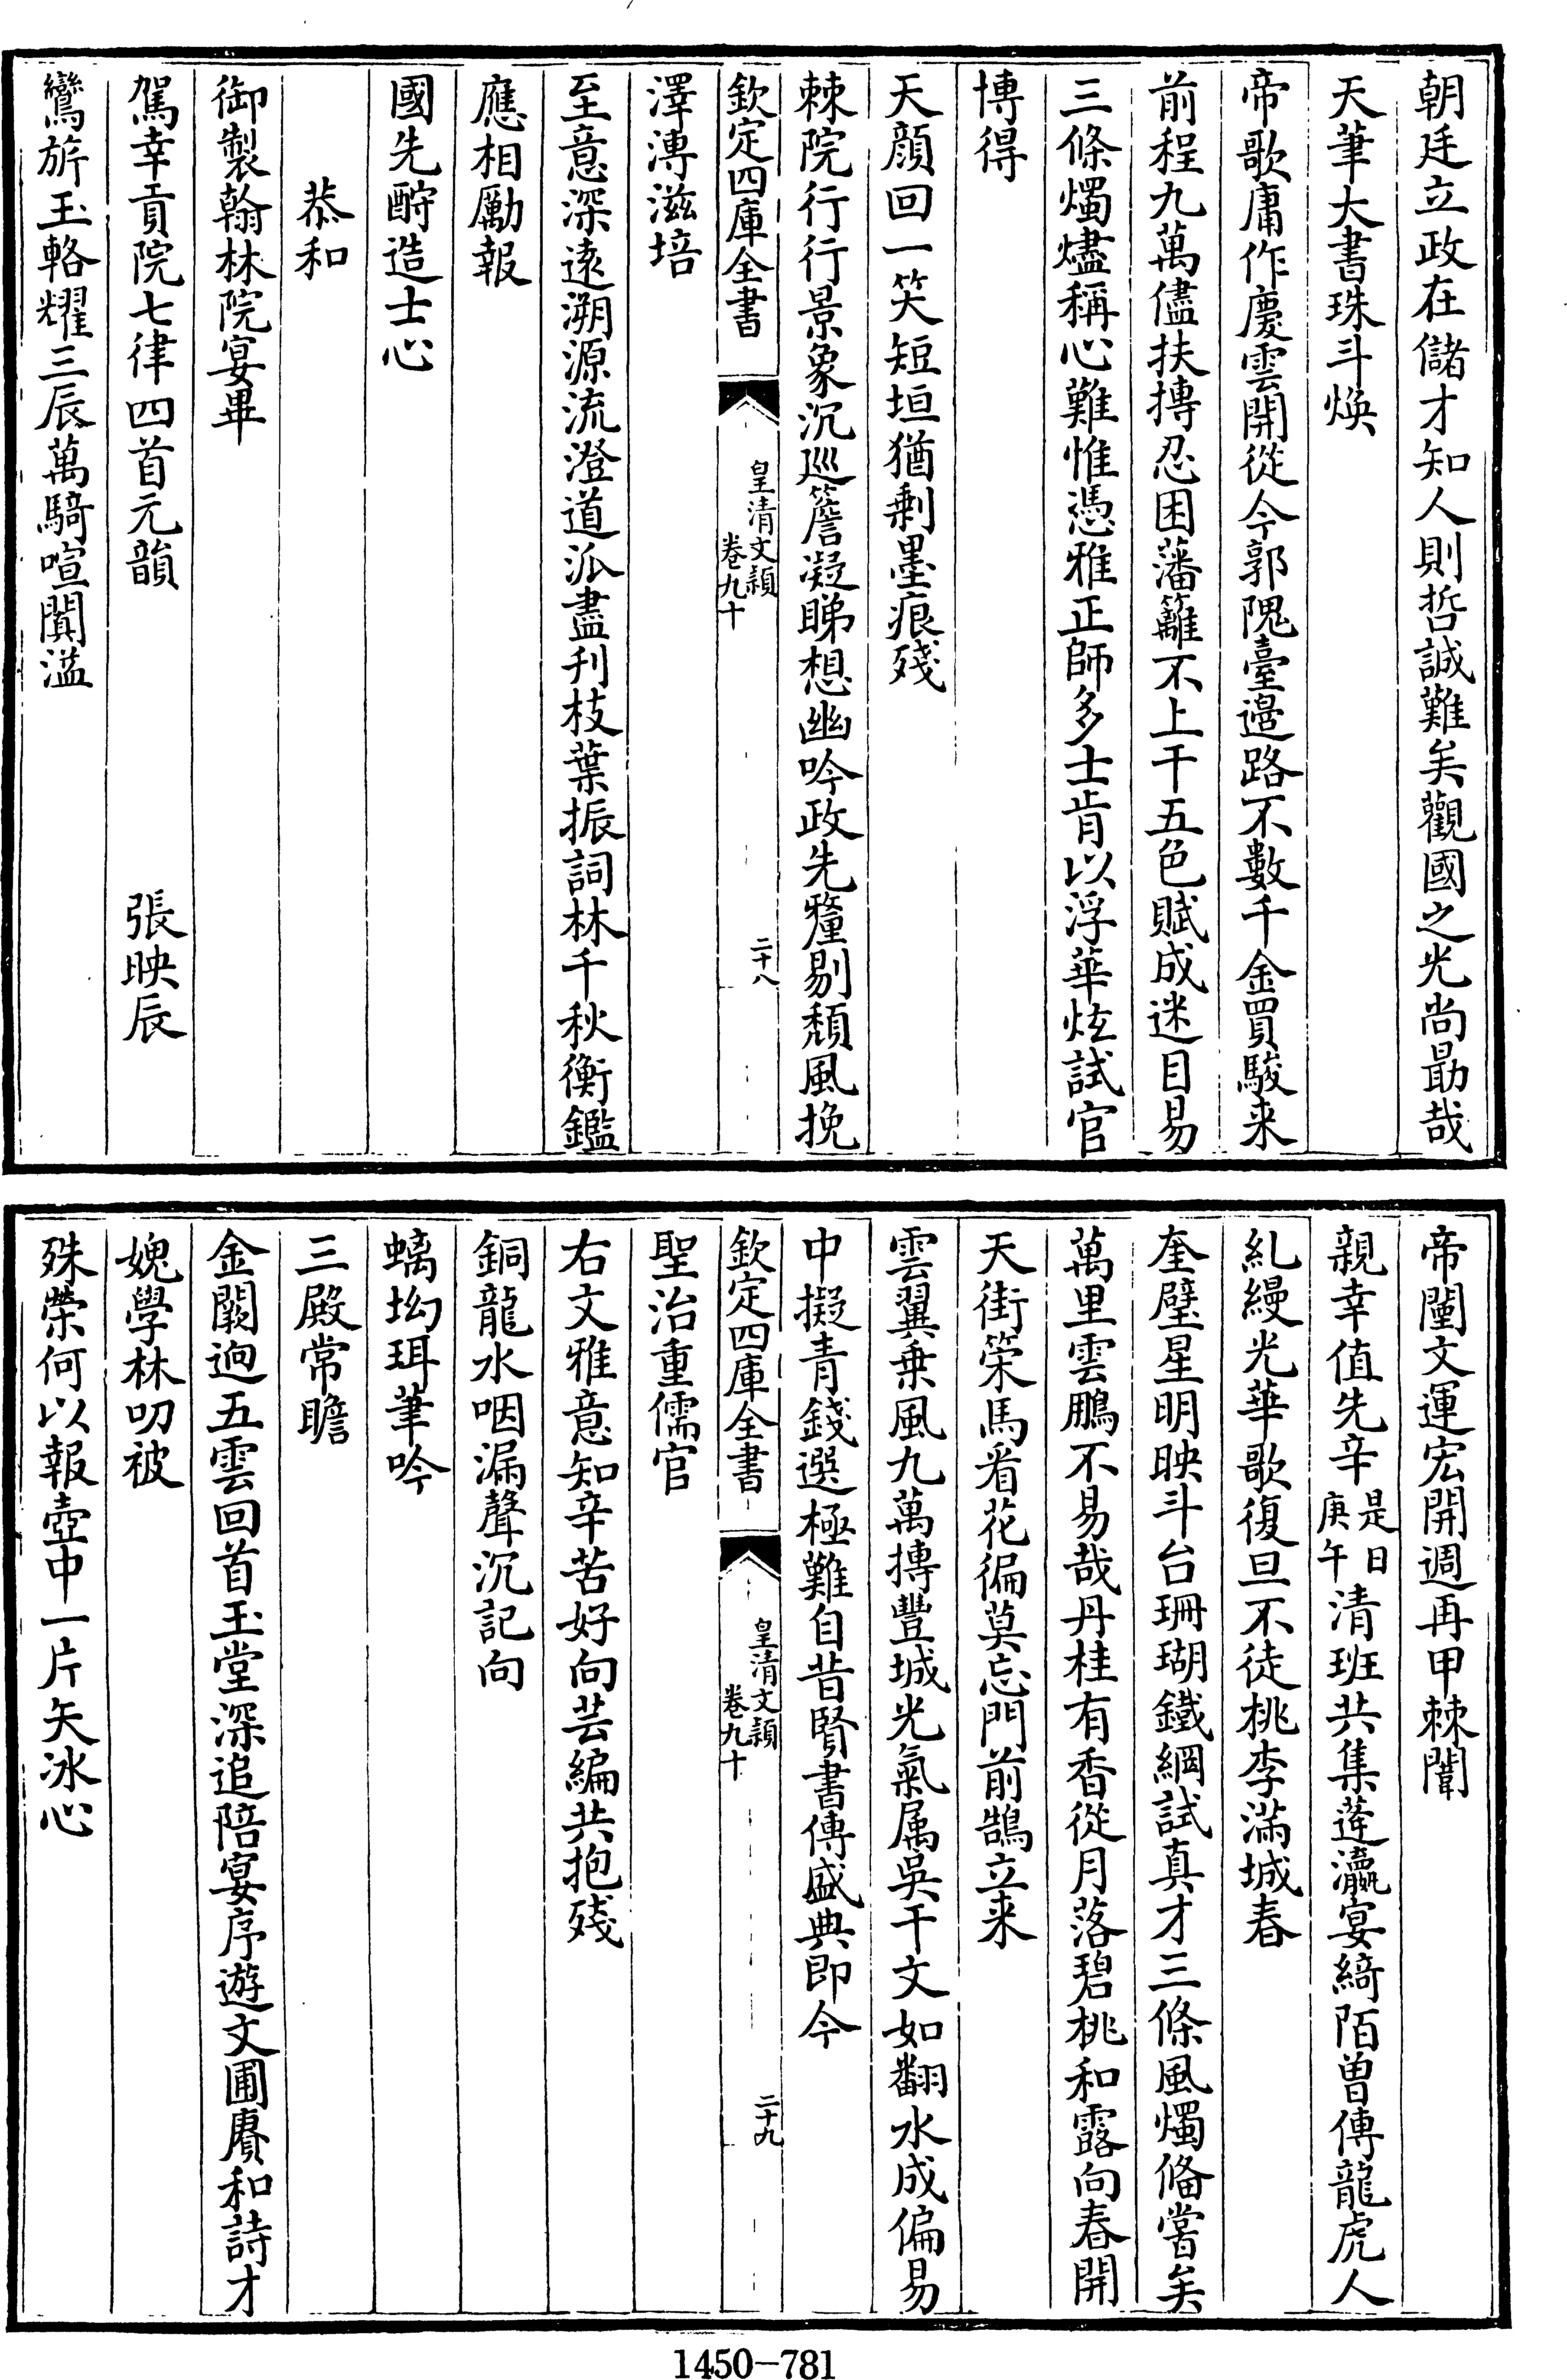 朝廷立政在儲才知人則哲誠難矣觀國之光尚勗哉
天筆大書珠斗煥
帝歌庸作慶雲開從今郭隗臺邉路不數千金買駿来
前程九萬儘扶摶忍困藩籬不上干五色賦成迷目易
三條燭燼稱心難惟憑雅正師多士肯以浮華炫試官
博得
天顔回一笑短垣猶剩墨痕殘
棘院行行景象沉廵簷凝睇想幽吟政先釐剔頽風挽
欽定四庫全書
皇清文頴
卷九十
二十八
澤溥滋培
至意深逺溯源流澄道派盡刋枝葉振詞林千秋衡鑑
應相勵報
國先酹造士心
恭和
御製翰林院宴畢
駕幸貢院七律四首元韻
張映辰
鸞旂玉輅耀三辰萬騎喧闐溢
帝闉文運宏開週再甲棘闈
親幸值先辛
是日
庚午
清班共集蓬瀛宴綺陌曽傳龍虎人
糺縵光華歌復旦不徒桃李滿城春
奎璧星明映斗台珊瑚鐵綱試真才三條風燭偹嘗矣
萬里雲鵬不易哉丹桂有香從月落碧桃和露向春開
天街策馬㸔花徧莫忘門前鵠立来
雲翼乗風九萬摶豐城光氣属吳干文如翻水成偏易
中擬青錢選極難自昔賢書傳盛典即今
欽定四庫全書
皇清文頴
卷九十
二十九
聖治重儒官
右文雅意知辛苦好向芸編共抱殘
銅龍水咽漏聲沉記向
螭坳珥筆吟
三殿常瞻
金闕逈五雲回首玉堂深追陪宴序遊文圃賡和詩才
媿學林叨被
殊榮何以報壺中一片矢冰心
1450-781